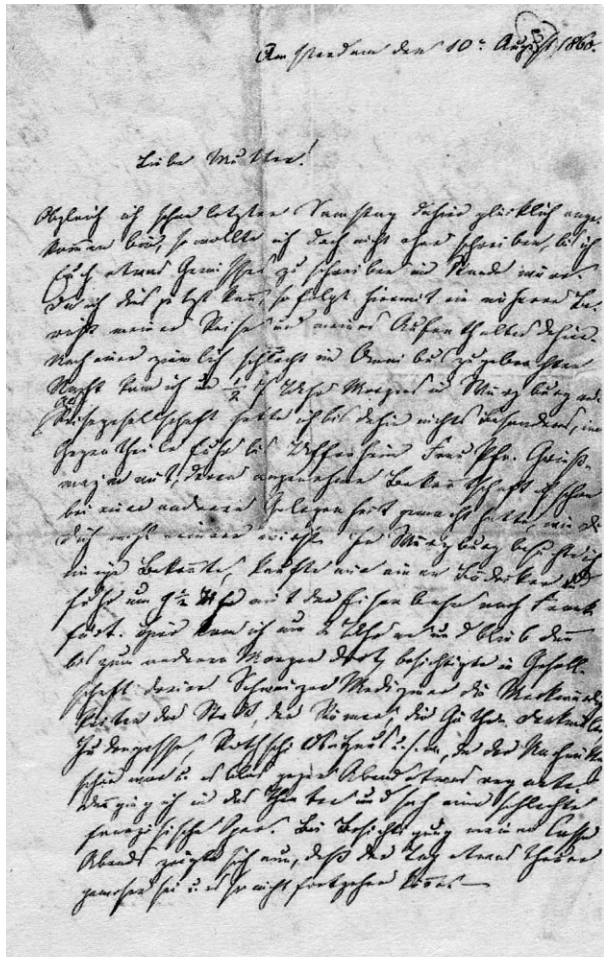 Amsterdam den 10n August 1860.
Liebe Mutter!
Obgleich ich schon letzten Samstag dahier glücklich ange-
kommen bin, so wollte ich doch nicht eher schreiben, bis ich
Euch etwas Gewisses zu schreiben im Stande wäre.
Da ich dies jetzt kann, so folgt hiermit ein näherer Be-
richt meiner Reise und meines Aufenthaltes dahier.
Nach einer ziemlich schlecht im Omnibus zugebrachten
Nacht kam ich um ½ Uhr Morgens in Würzburg an.
Als Reisegesellschaft hatte ich bis dahin nichts Besonderes, im
Gegentheile fuhr bis Uffenheim Frau Pfr.
mit, deren angenehme Bekanntschaft ich schon
bei einer anderen Gelegenheit gemacht hatte, wie Du
Dich wohl erinnern wirst. In Würzburg besuchte ich
einige Bekannte, kaufte mir einen Bädecker und
fuhr um 9½ Uhr mit der Eisenbahn nach Frank-
furt. Hier kam ich um 2 Uhr an und blieb dann
bis zum anderen Morgen dort, besichtigte in Gesell-
schaft Schweizer Mediziner die Merkwürdig-
keiten der Stadt, den Römer, die Göthe
Judengasse, Rothschild Haus u.s.w., da der Nachmittag
schön war u. es blos gegen Abend etwas regnete.
Dann ging ich in das Theater und sah eine schlechte
französische Oper. Bei Besichtigung meiner Casse
Abends zeigte sich nun, daß der Tag etwas theuer
gewesen sei u. es so nicht fortgehen könne —